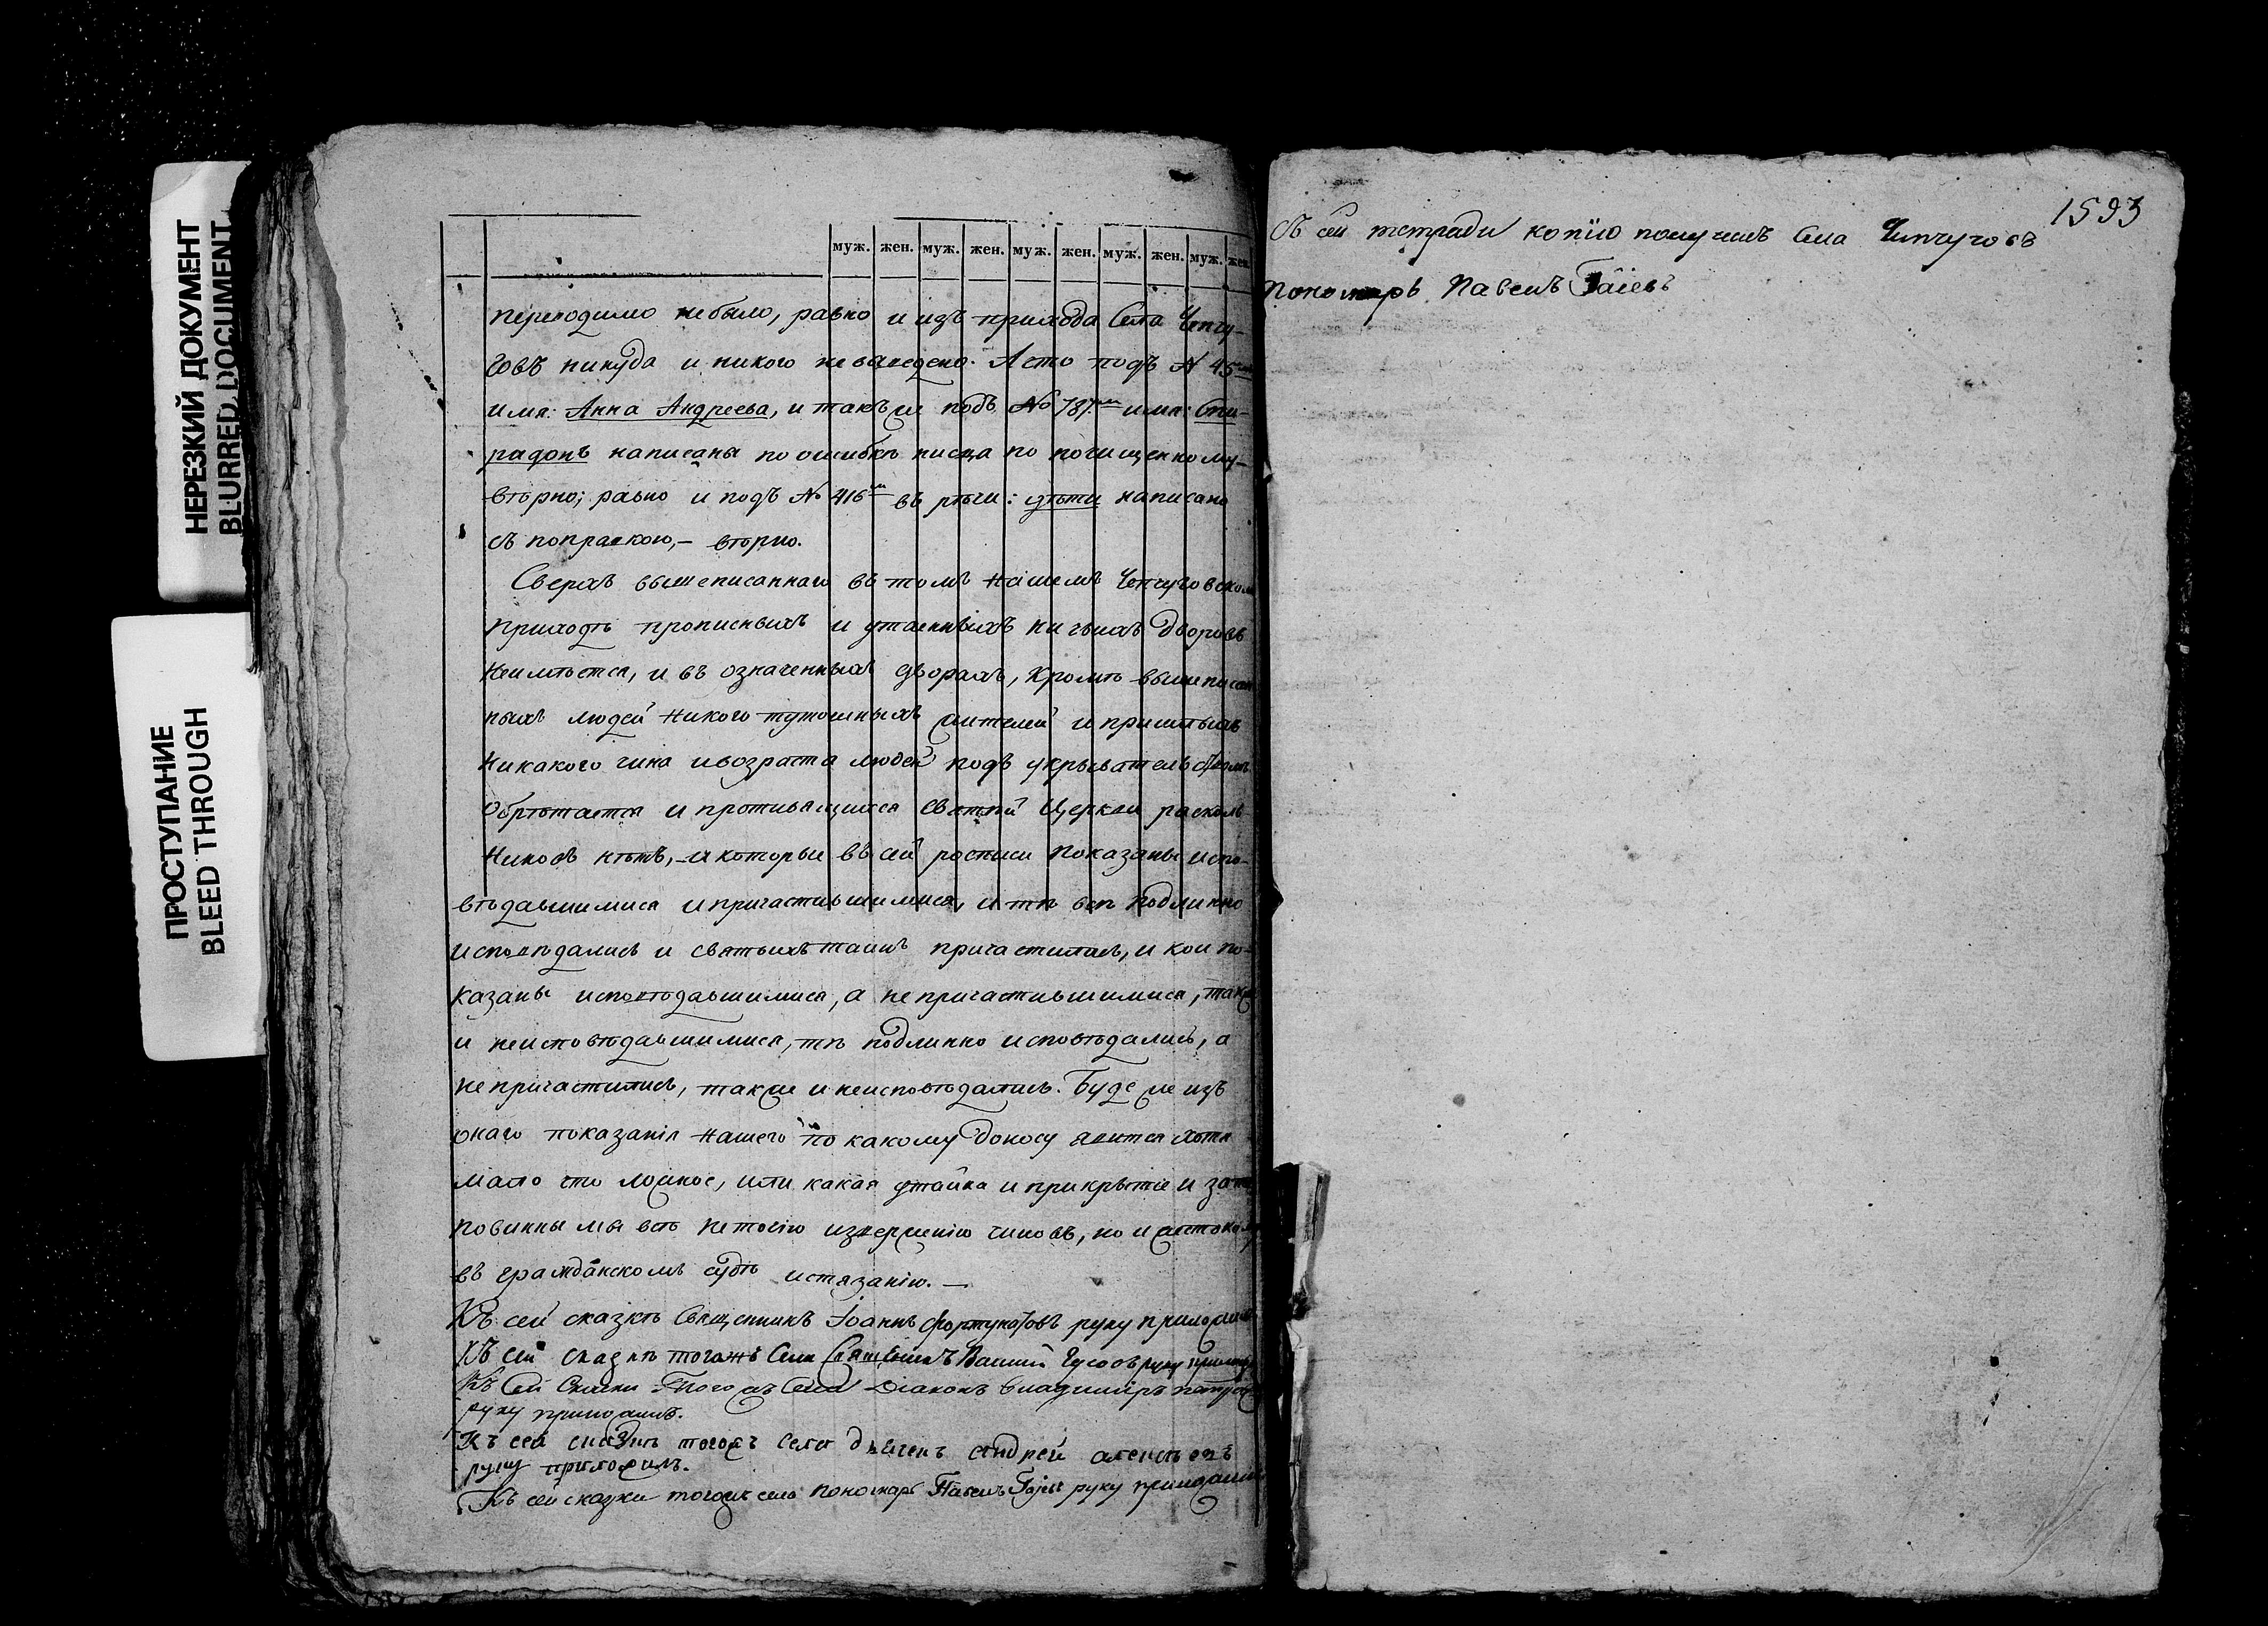 НЕРЕЗКИЙ ДОКУМЕНТ
BLURRED DOCUMENT
ПРОСТУПАНИЕ
BLEED THROUGH
муж. жен. муж. жен. муж. жен. муж. жен. муж. жен.
переходимо небыло, равно и изъ прихода Села Чепчу-
говъ никуда и никого не выведено. А сто подъ № 45мъ
имя: Анна Андреева, и такъ же подъ № 787мъ имя: Спи-
ридонъ написаны по ошибкѣ писца по почищенному-
вѣрно; равно и подъ № 416мъ въ рѣчи: дѣти написано
съ поправкою,- вѣрно.
Сверхъ вышеписаннаго въ томъ нашемъ Чепчуговском
приходѣ прописныхъ и утаенныхъ ничьихъ дворовъ
Неимѣется, и въ означенныхъ дворахъ, кромѣ вышеписан
ныхъ людей никого тутошныхъ жителей и пришлыхъ
никакого чина ивозраста людей подъ укрывательствомъ
Обрѣтается и противящихся Святой Церкви расколь
никовъ нѣтъ,-и которые въ сей росписи показаны испо-
вѣдавшимися ипричастившимися, и тѣ всѣ подлинно
исповѣдались и святыхъ таинъ причастились, и кои по-
казаны исповѣдавшимися, а непричастившимися, также
и неисповѣдавшимися, тѣ подлинно исповѣдались, а
непричастились, также и неисповѣдались. Буде же изъ
онаго показанія нашего по какому доносу явится хотя
мало что ложное, или какая утайка и прикрытіе и за то
повинны мы всѣ неточію изверженію чиновъ, но и жестоко му
въ гражданскомъ судѣ истязанію. —
Къ сей сказкѣ Священникъ Іоаннъ Фортунатовъ руку приложилъ
Къ сей сказкѣ тогожъ Села Священникъ Василій руку приложилъ
Къ Сей Сказки Тогожъ Села Діаконъ Владимиръ Петровъ
руку приложилъ.
Къ сей сказкѣ тогожъ села дьячекъ андрей алексѣевъ
руку приложилъ.
Къ сей сказки тогожъ села пономарь Павелъ Гаіевъ руку приложилъ
1593
Съ сей тетради копію получилъ Села Чепчуговъ
пономарь Павелъ Гаіевъ